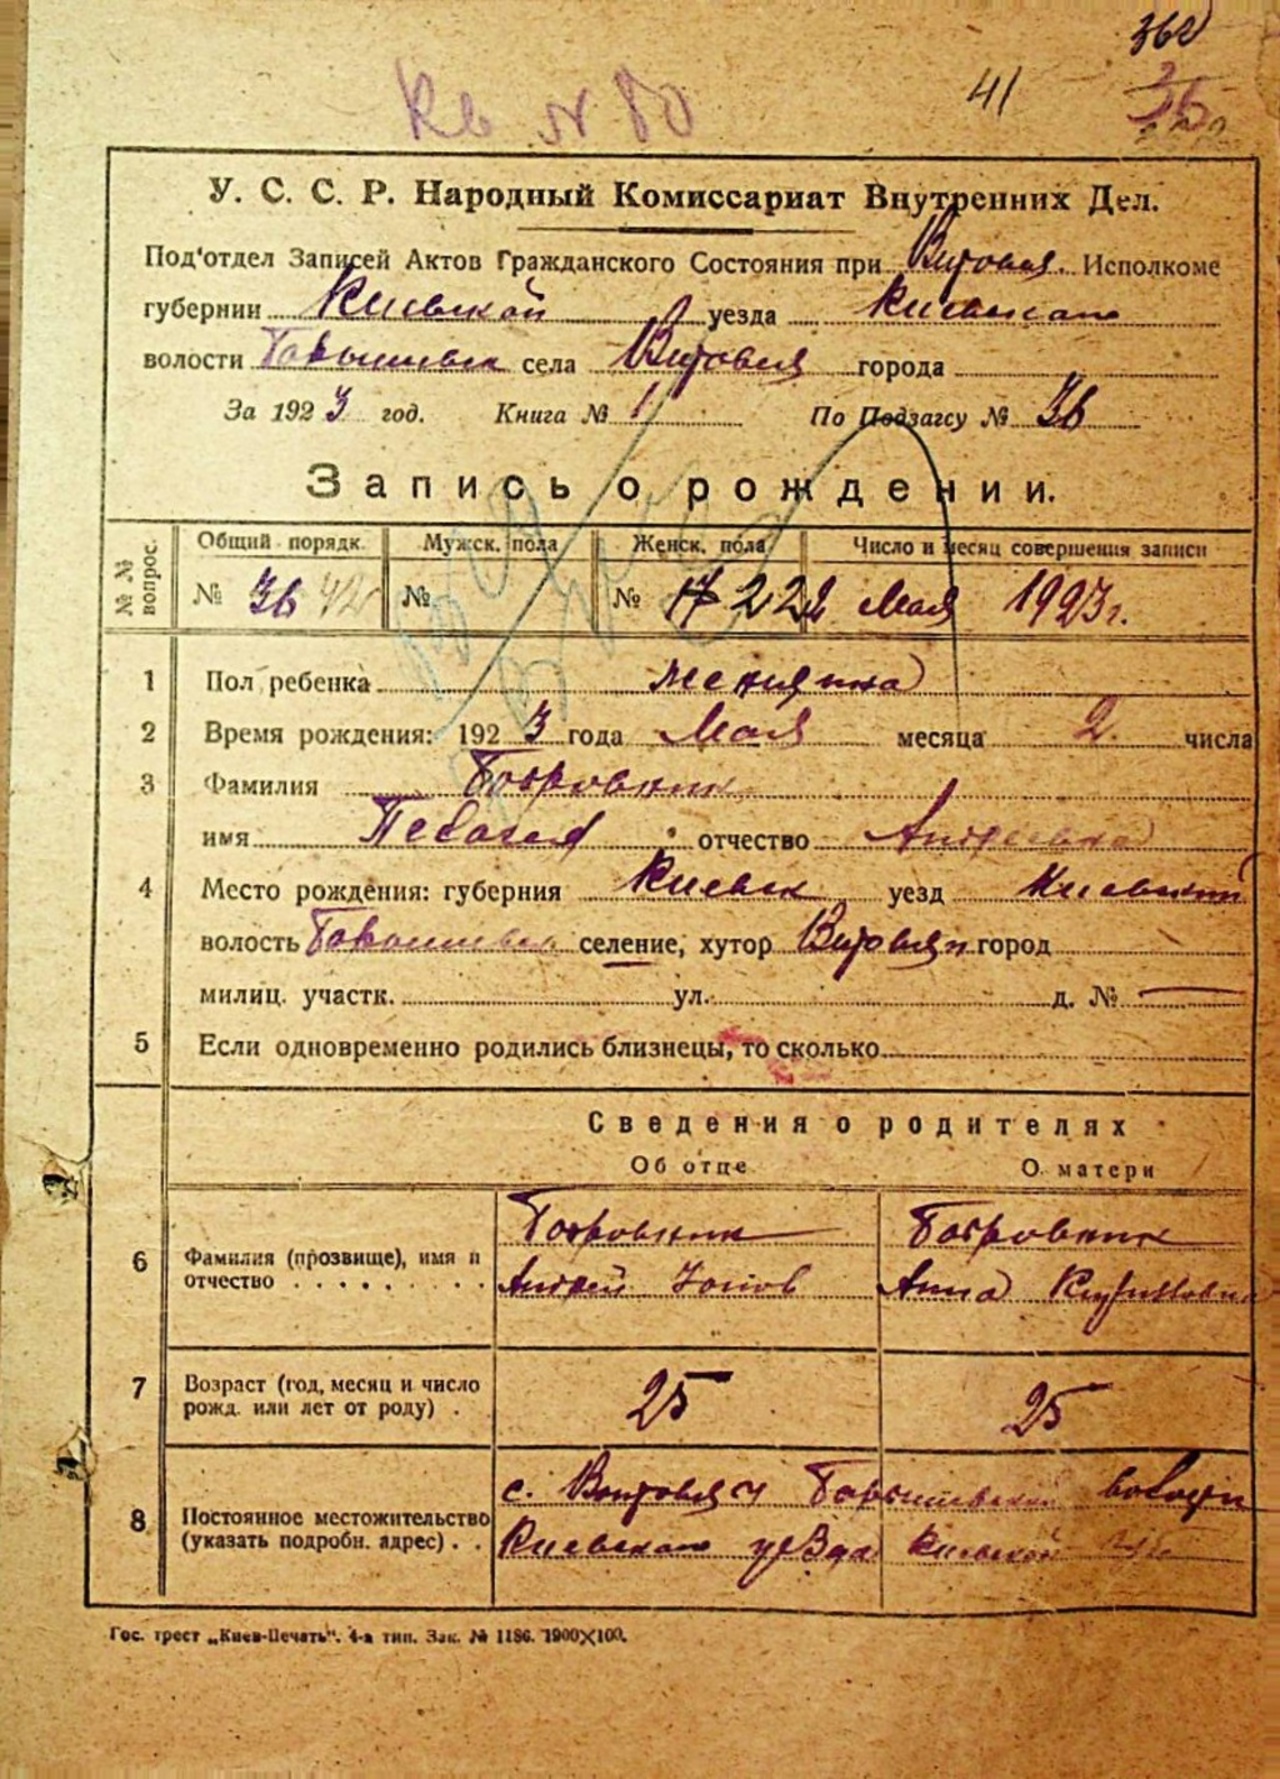 362
Кв № 80 41 36
У. С. С. Р. Народный Комиссариат Внутренних Дел.
Под'отдел Записей Актов Гражданского Состояния при Исполкоме
губернии Киевской уезда Киевского
волости села города
За 1923 год. Книга № 1 По Подзагсу № 36
Запись о рождении.
№ № вопрос. Общий порядк. Мужск. пола Женск. пола Число и месяц совершения записи
№ 36 42 № № 17 22 2 Мая 1923 г.
1 Пол ребенка женщина
2 Время рождения: 1923 года Мая месяца 2 числа
3 Фамилия Бобровник
имя Пелагея отчество Андреевна
4 Место рождения: губерния Киевск уезд Киевский
волость селение, хутор город
милиц. участк. ул. д. № —
5 Если одновременно родились близнецы, то сколько
Сведения о родителях
Об отце О матери
6 Фамилия (прозвище), имя и отчество Бобровник Бобровник
Андрей Анна
7 Возраст (год, месяц и число рожд. или лет от роду) 25 25
8 Постоянное местожительство (указать подробн. адрес) с. волости
Киевского уезда Киевской губ
Гос. трест „Киев-Печать". 4-я тип. Зак. № 1186. 1900×100.